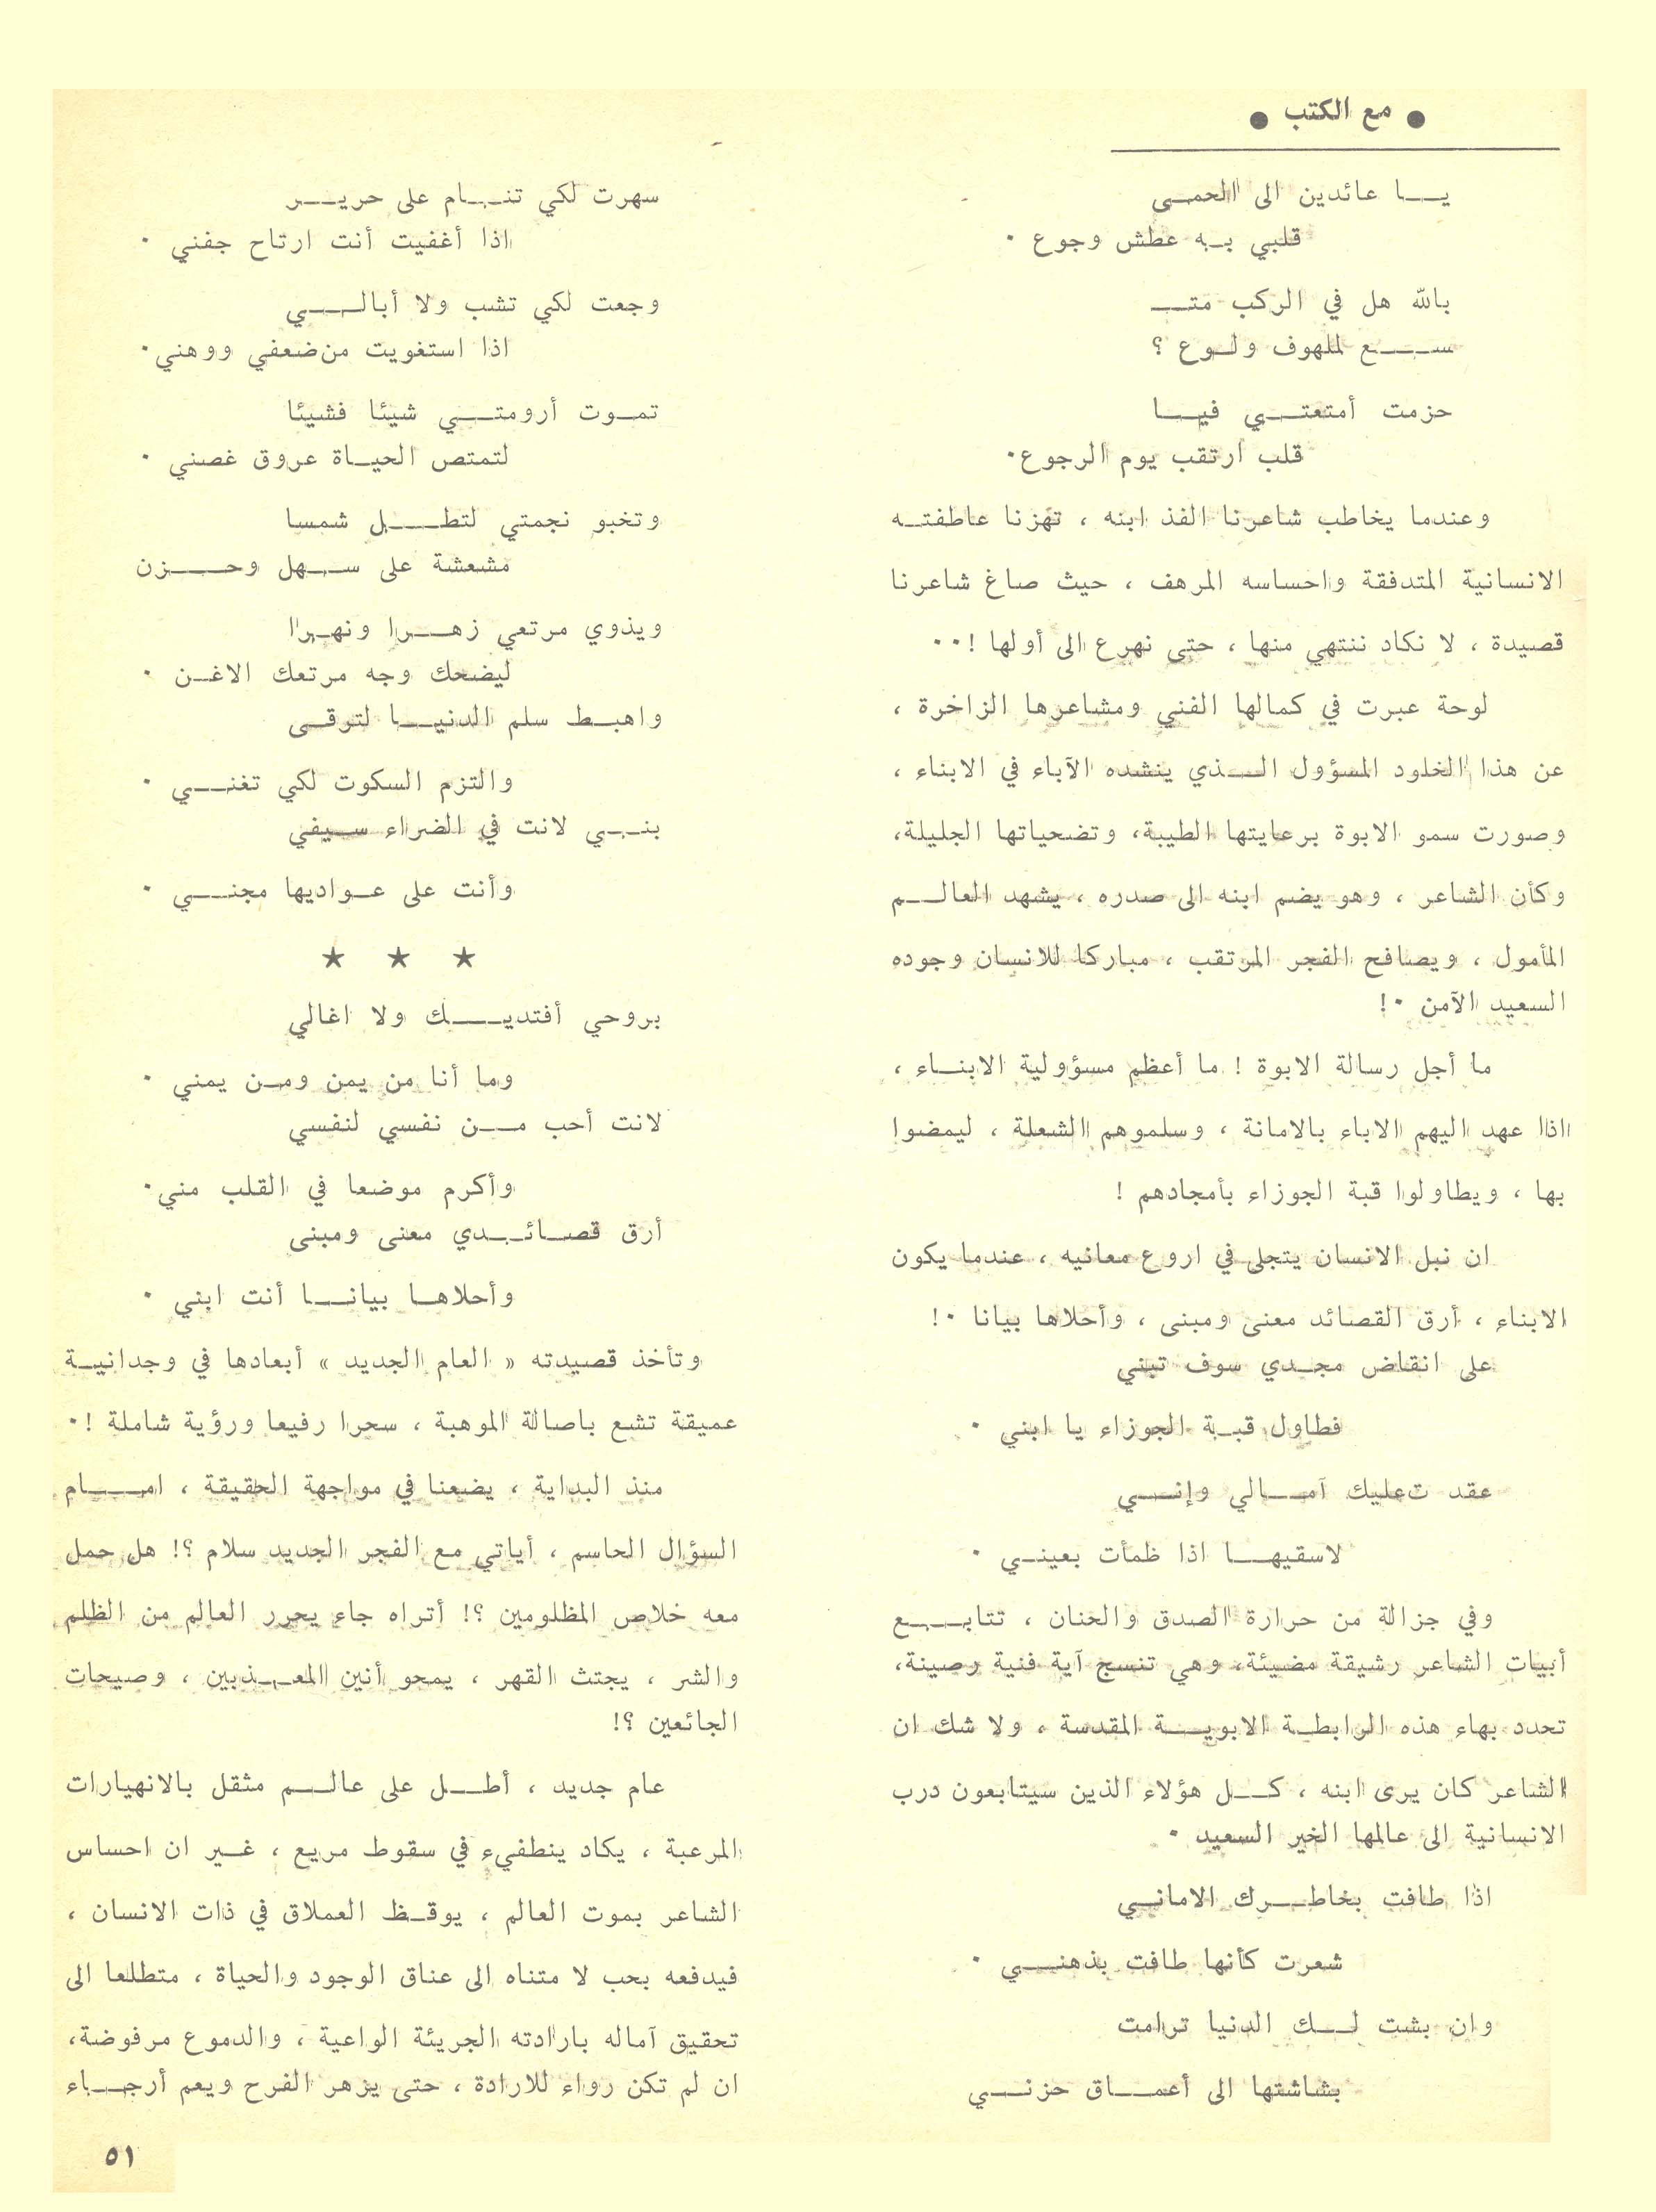 ● مع الكتب ●
يا عائدين الى الحمى
قلبي به عطش وجوع ٠
بالله هل في الركب متـ
سع لملهوف ولوع ؟
حزمت أمتعتي فيا
قلب ارتقب يوم الرجوع ٠
وعندما يخاطب شاعرنا الفذ ابنه ، تهزنا عاطفته
الانسانية المتدفقة واحساسه المرهف ، حيث صاغ شاعرنا
قصيدة ، لا نكاد ننتهي منها ، حتى نهرع الى أولها !٠٠
لوحة عبرت في كمالها الفني ومشاعرها الزاخرة ،
عن هذا الخلود المسؤول الذي ينشده الآباء في الابناء ،
وصورت سمو الابوة برعايتها الطيبة، وتضحياتها الجليلة،
وكأن الشاعر ، وهو يضم ابنه الى صدره ، يشهد العالم
المأمول ، ويصافح الفجر المرتقب ، مباركا للانسان وجوده
السعيد الآمن ٠!
ما أجل رسالة الابوة ! ما أعظم مسؤولية الابناء ،
اذا عهد اليهم الاباء بالامانة ، وسلموهم الشعلة ، ليمضوا
بها ، ويطاولوا قبة الجوزاء بأمجادهم !
ان نبل الانسان يتجلى في اروع معانيه ، عندما يكون
الابناء ، أرق القصائد معنى ومبنى ، وأحلاها بيانا ٠!
على انقاض مجدي سوف تبني
فطاول قبة الجوزاء يا ابني ٠
عقد تعليك آمالي وإني
لاسقيها اذا ظمأت بعيني ٠
وفي جزالة من حرارة الصدق والحنان ، تتابع
أبيات الشاعر رشيقة مضيئة، وهي تنسج آية فنية رصينة،
تحدد بهاء هذه الرابطة الابوية المقدسة ، ولا شك ان
الشاعر كان يرى ابنه ، كل هؤلاء الذين سيتابعون درب
الانسانية الى عالمها الخير السعيد ٠
اذا طافت بخاطرك الاماني
شعرت كأنها طافت بذهني ٠
وان بشت لك الدنيا ترامت
بشاشتها الى أعماق حزني
سهرت لكي تنام على حرير
اذا أغفيت أنت ارتاح جفني ٠
وجعت لكي تشب ولا أبالي
اذا استغويت من ضعفي ووهني٠
تموت أرومتي شيئا فشيئا
لتمتص الحياة عروق غصني ٠
وتخبو نجمتي لتطل شمسا
مشعشة على سهل وحزن
ويذوي مرتعي زهرا ونهرا
ليضحك وجه مرتعك الاغن ٠
واهبط سلم الدنيا لترقى
والتزم السكوت لكي تغني ٠
بني لانت في الضراء سيفي
وأنت على عواديها مجني ٠
★ ★ ★
بروحي أفتديك ولا اغالي
وما أنا من يمن ومن يمني ٠
لانت أحب من نفسي لنفسي
وأكرم موضعا في القلب مني٠
أرق قصائدي معنى ومبنى
وأحلاها بيانا أنت ابني ٠
وتأخذ قصيدته « العام الجديد » أبعادها في وجدانية
عميقة تشع باصالة الموهبة ، سحرا رفيعا ورؤية شاملة !٠
منذ البداية ، يضعنا في مواجهة الحقيقة ، امام
السؤال الحاسم ، أياتي مع الفجر الجديد سلام ؟! هل حمل
معه خلاص المظلومين ؟! أتراه جاء يحرر العالم من الظلم
والشر ، يجتث القهر ، يمحو أنين المعذبين ، وصيحات
الجائعين ؟!
عام جديد ، أطل على عالم مثقل بالانهيارات
المرعبة ، يكاد ينطفيء في سقوط مريع ، غير ان احساس
الشاعر بموت العالم ، يوقظ العملاق في ذات الانسان ،
فيدفعه بحب لا متناه الى عناق الوجود والحياة ، متطلعا الى
تحقيق آماله بارادته الجريئة الواعية ، والدموع مرفوضة،
ان لم تكن رواء للارادة ، حتى يزهر الفرح ويعم أرجاء
٥١